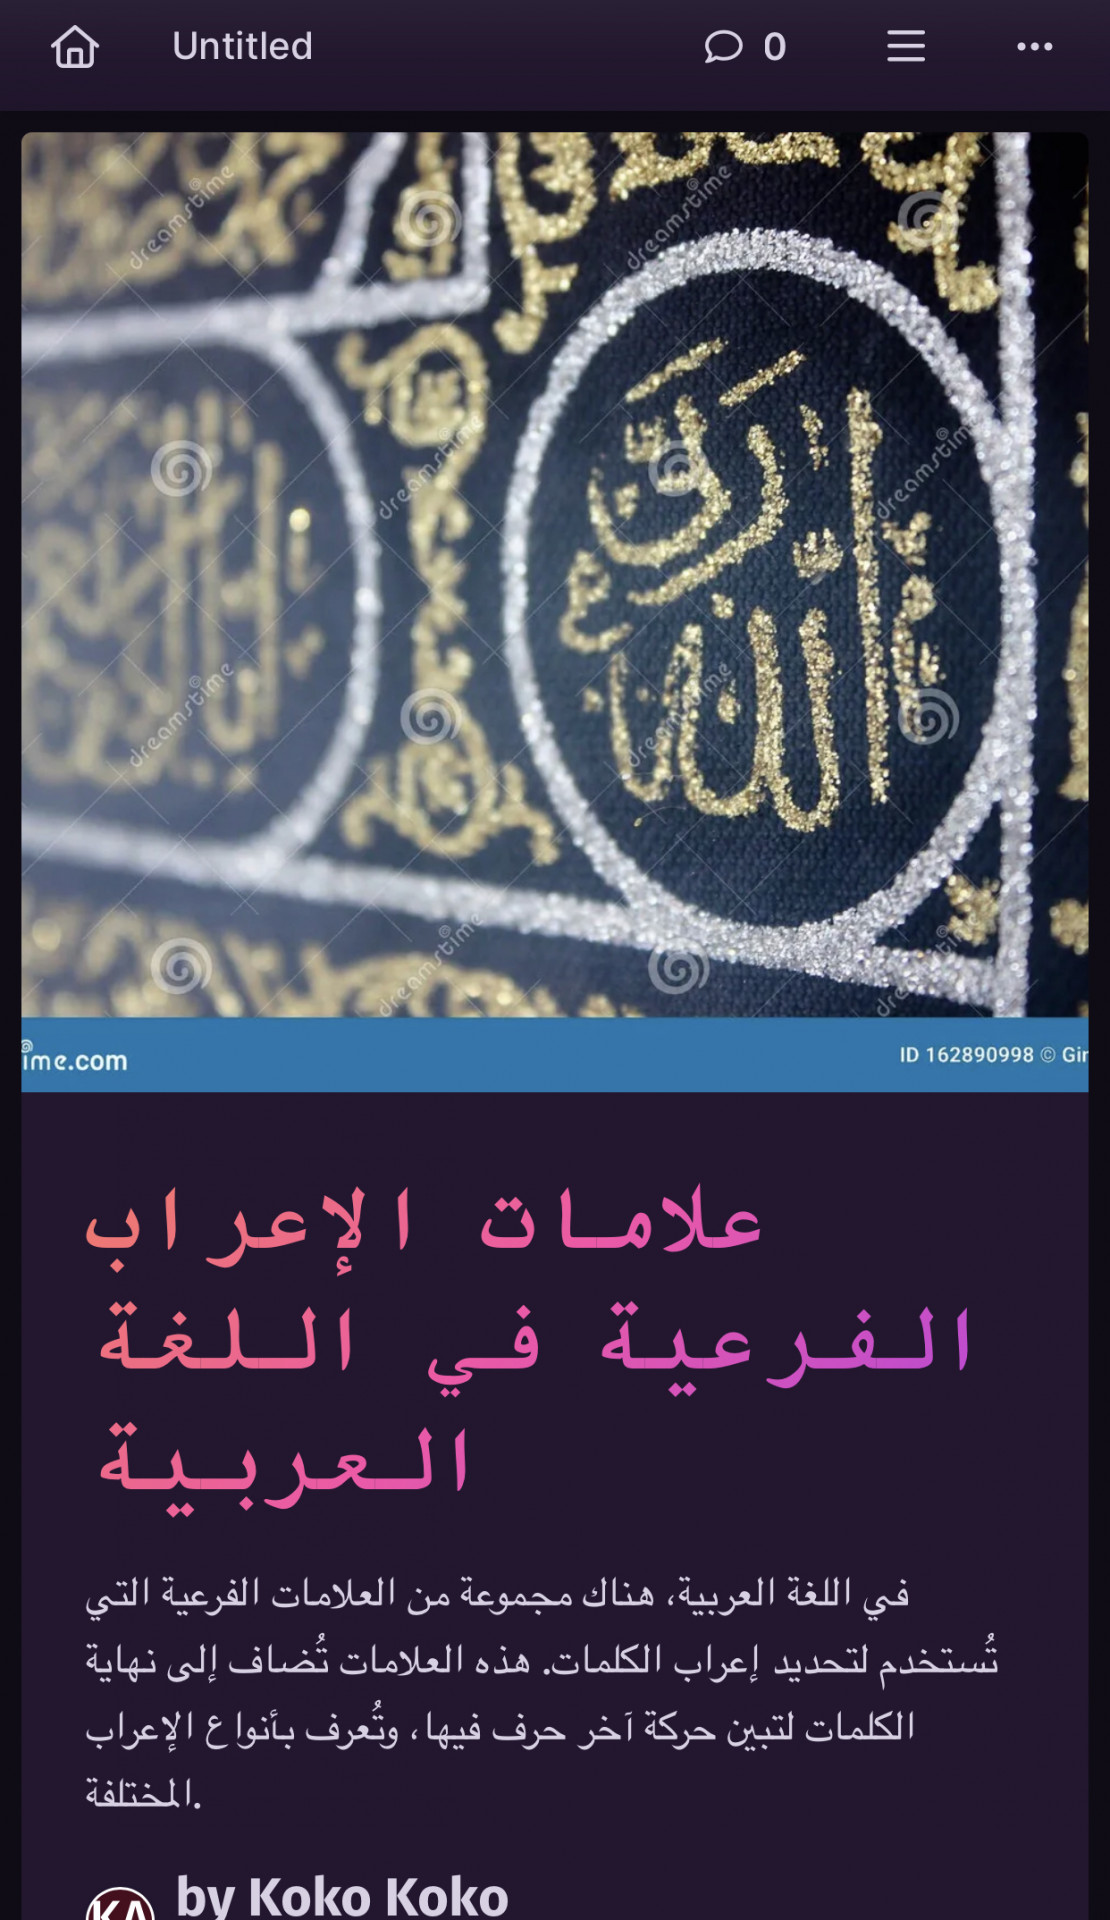 Untitled
0
dreamstime
الله ربي
ime.com
ID 162890998 © Gir
علامات الإعراب
الفرعية في اللغة
العربية
في اللغة العربية، هناك مجموعة من العلامات الفرعية التي
تُستخدم لتحديد إعراب الكلمات. هذه العلامات تُضاف إلى نهاية
الكلمات لتبين حركة آخر حرف فيها، وتُعرف بأنواع الإعراب
المختلفة.
KA
by Koko Koko